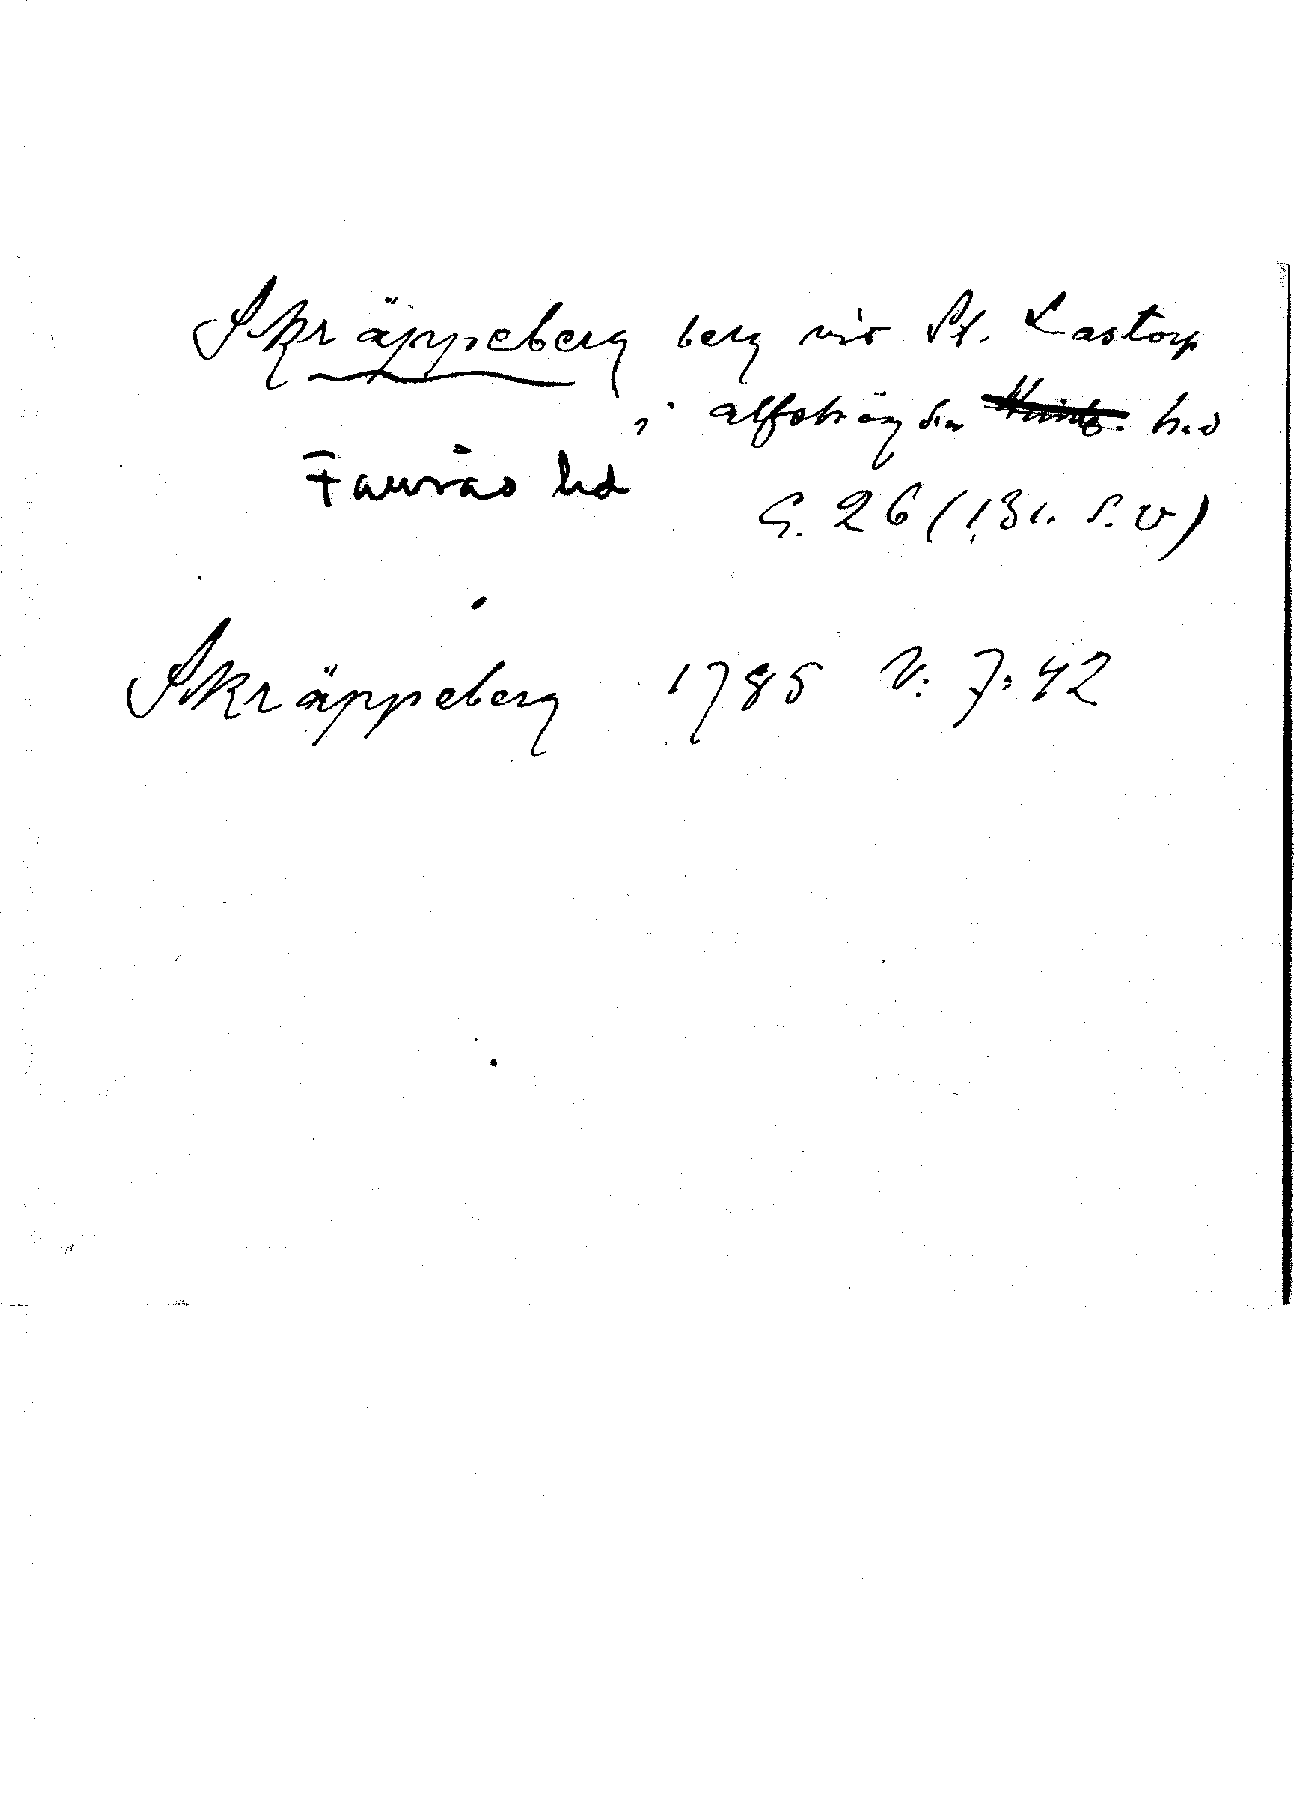 Skräppeberg berg vid St. Lastorp
i Alfshögs sn h.d
Faurås hd
G. 26 (1 Bl. S.V)
Skräppeberg 1785 V: 7:42